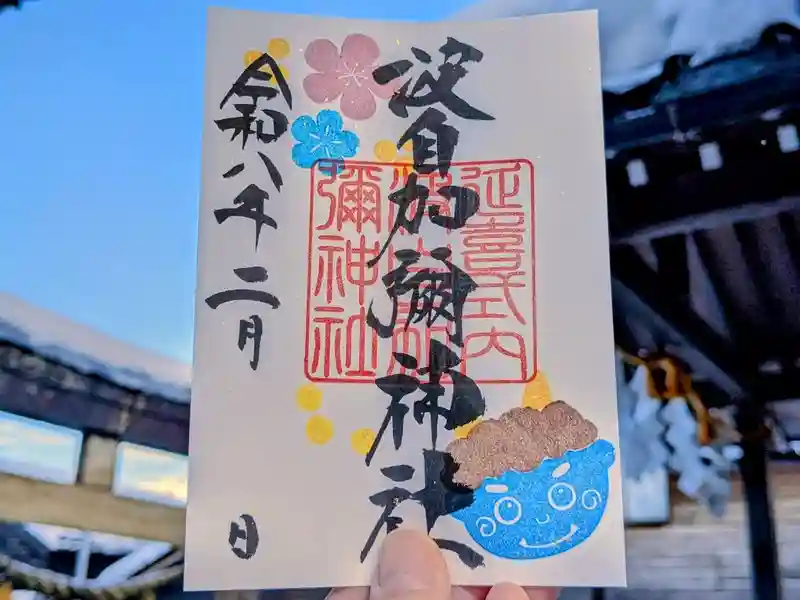 波自加彌神社
延喜式内
波自加
彌神社
令和八年二月 日